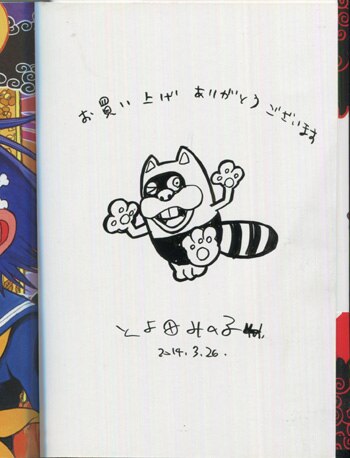 お買い上げ ありがとうございます
とよ田みのる
2014.3.26.